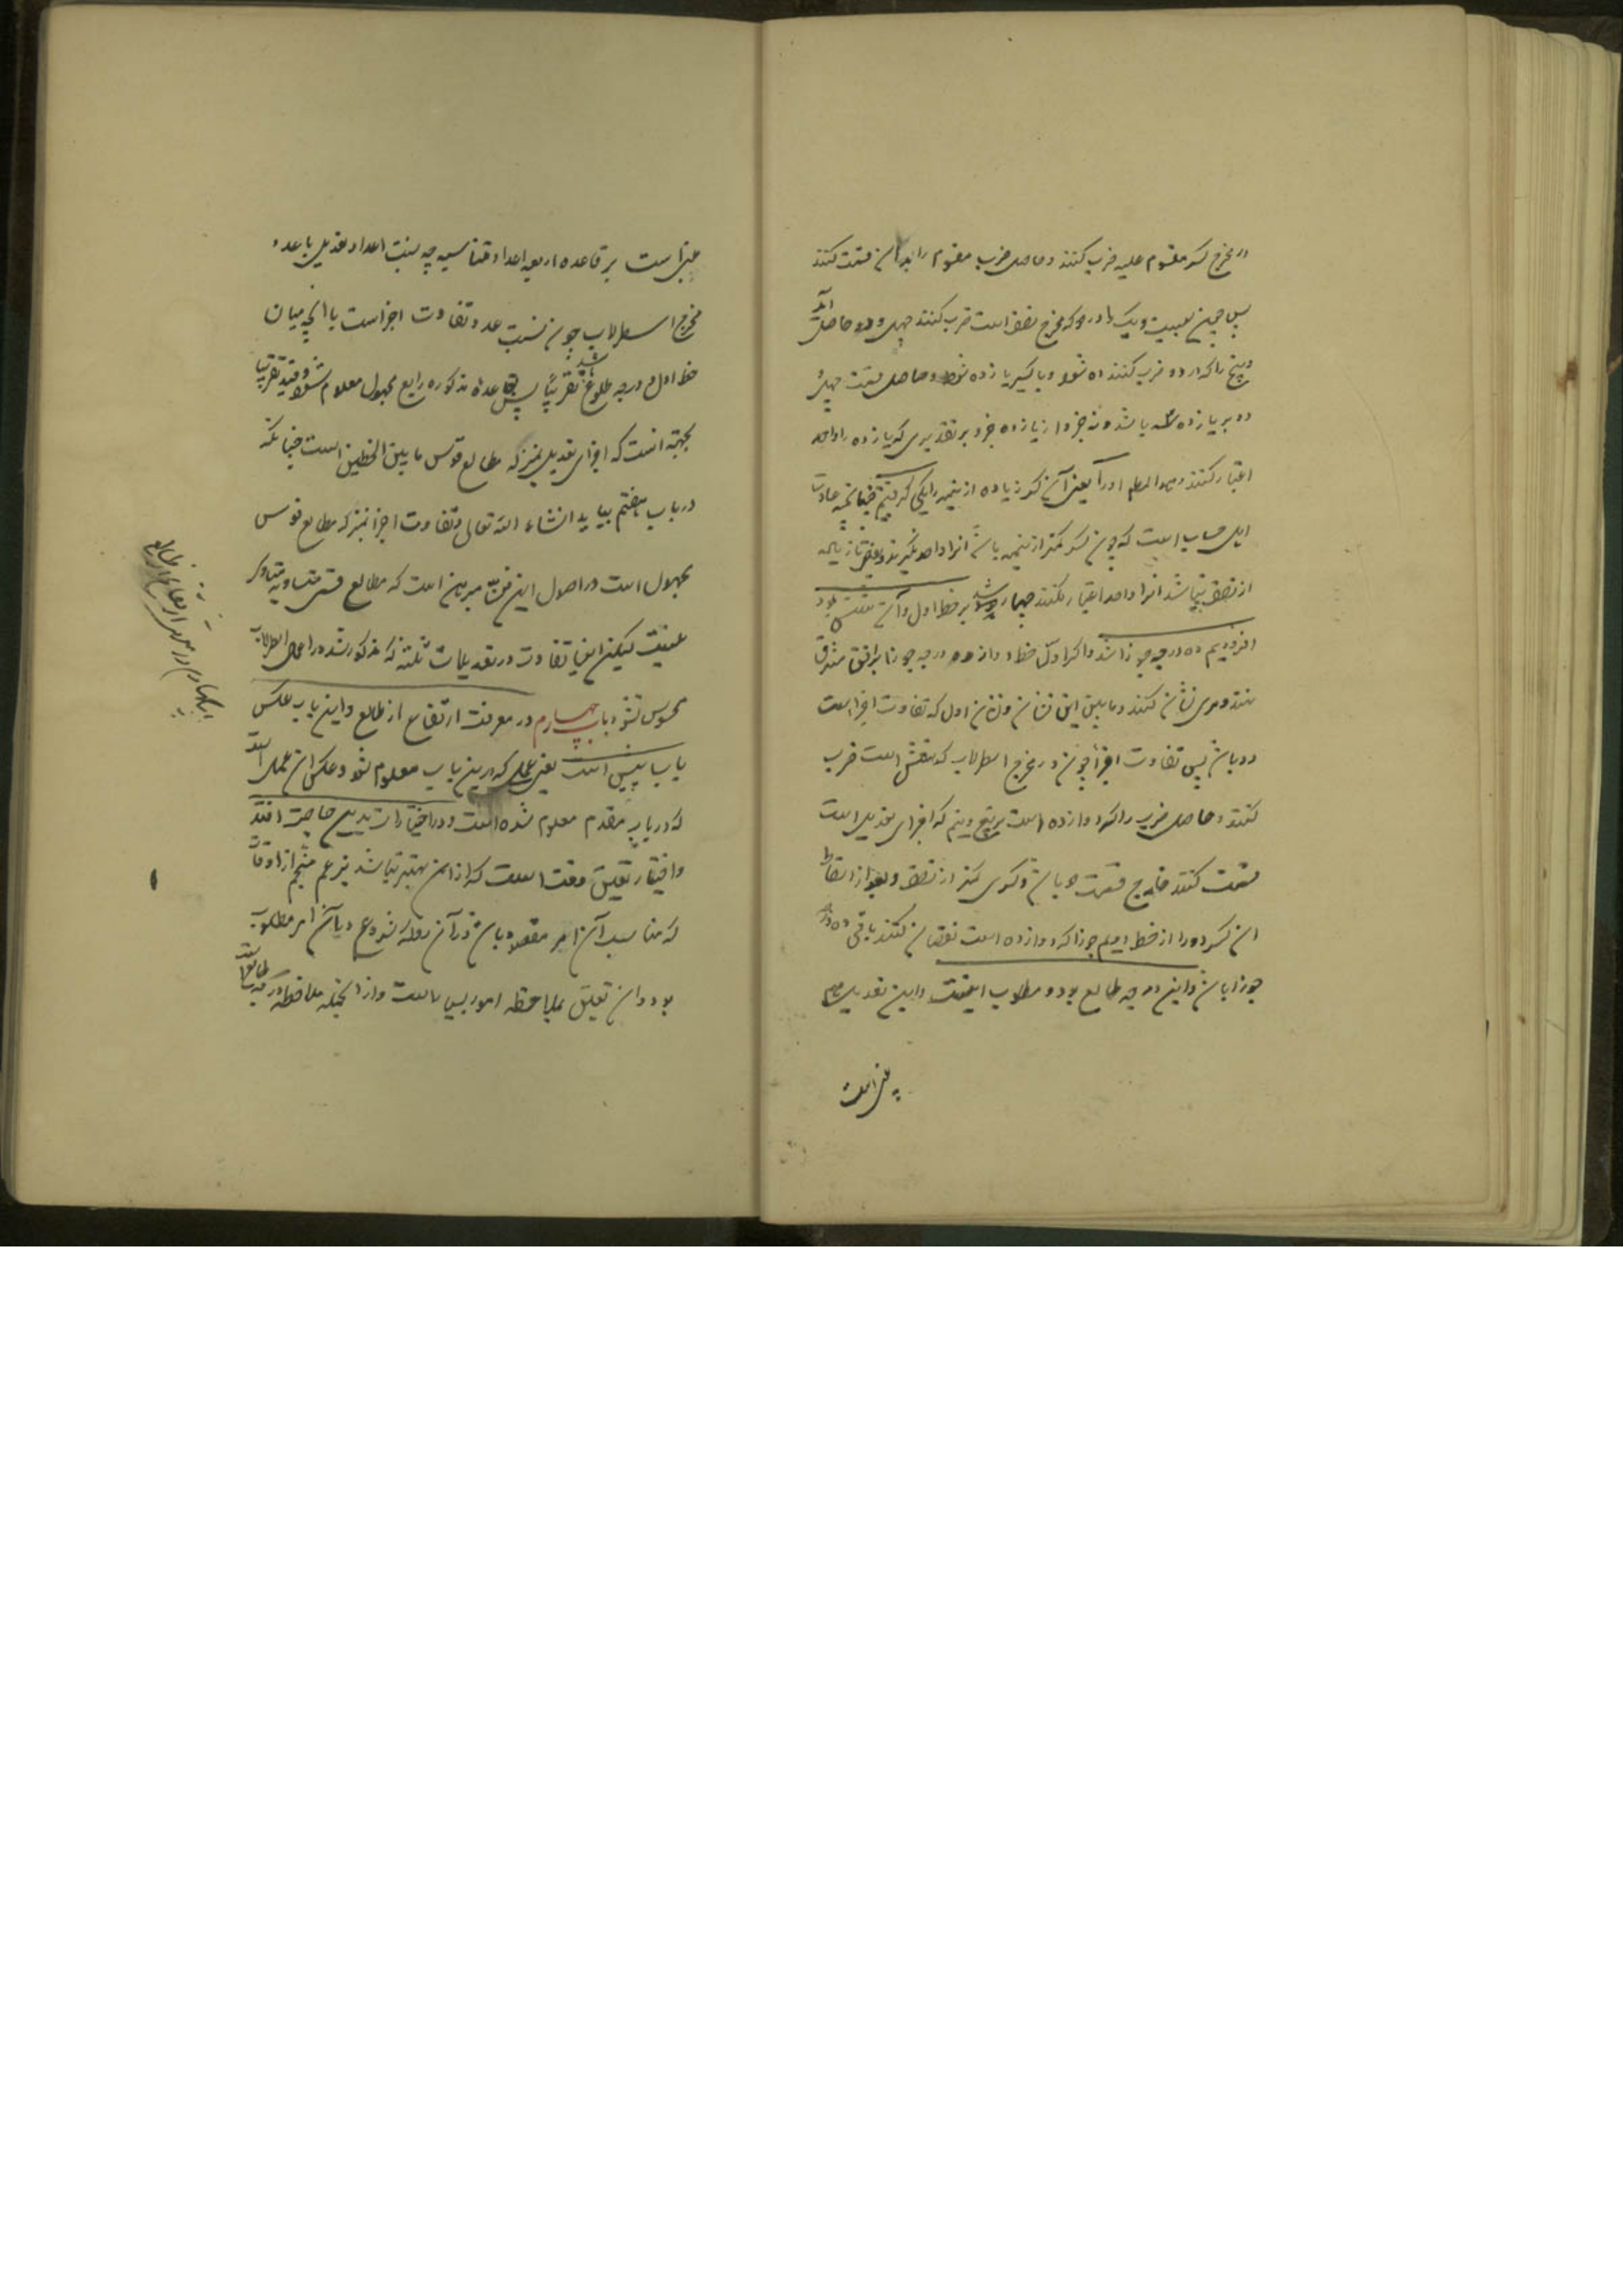 در مخرج کسر مقسوم علیه ضرب کنند و حاصل ضرب مقسوم را بدان قسمت کنند
پس چون بیست و یک را در دو که مخرج نصف است ضرب کنند چهل و دو حاصل آید
و پنج را که در دو ضرب کنند ده شود و با کسر یازده شود و حاصل قسمت چهل و
دو بر یازده سه باشد و نه جزو از یازده جزو بر تقدیری که یازده را واحد
اعتبار کنند و یعنی آن کسر زیاده از نیمه را یکی گرفتیم چنانچه عادت
اهل حساب است که چون کسر کمتر از نیمه باشد آنرا واحد نگیرند و یعنی تا زیاده
از نصف نباشد آنرا واحد اعتبار نکنند چهار شد بر خط اول و آن شش بود
افزودیم ده درجه جوزا شد و اگر اولا خط دوازده درجه جوزا بر افق مشرق
نهند و مری نشان کنند و مابین این نشان و نشان اول که تفاوت اجزا است
دو باشد پس تفاوت اجزا چون در مخرج اسطرلاب که شش است ضرب
کنند و حاصل ضرب را که دوازده است بر پنج و نیم که اجزای تعدیل است
قسمت کنند خارج قسمت دو باشد و کسری کمتر از نصف و بعد از اسقاط
آن کسر دو را از خط دوم جوزا که دوازده است نقصان کنند باقی ده درجه
جوزا باشد و این درجه طالع بود و مطلوب اینست و این تعدیل هم
مبنی است
مبنی است بر قاعده اربعه اعداد متناسبه چه نسبت اعداد تعدیل با عدد
مخرج اسطرلاب چون نسبت عدد تفاوت اجزاست با آنچه میان
خط اول و درجه طلوع باشد تقریباً پس بقاعده مذکوره رابع مجهول معلوم شود و قید تقریبا
بجهة آنست که اجزای تعدیل بمنزله مطالع قوس مابین الخطین است چنانکه
در باب هفتم بیاید انشاء الله تعالی و تفاوت اجزا بمنزله مطالع قوس
مجهول است در اصول این فن مبرهن است که مطالع قسی متساویه متساوی
نیست لیکن این تفاوت در تعدیلات ثلثه که مذکور شد در اعمال اسطرلاب
محسوس نشود باب چهارم در معرفت ارتفاع از طالع و این باب عکس
باب پیش است یعنی عملی که در این باب معلوم شود و عکس آن عمل است
که در باب مقدم معلوم شده است و در اختیارات بدین حاجت افتد
و اختیار تعیین وقت است که از آن بهتر نباشد بزعم منجم از اوقات
که مناسب آن امر مقصود باشد در آن شروع در آن امر مطلوب
بود و آن تعیین بملاحظه امور بسیار است و از آنجمله ملاحظه